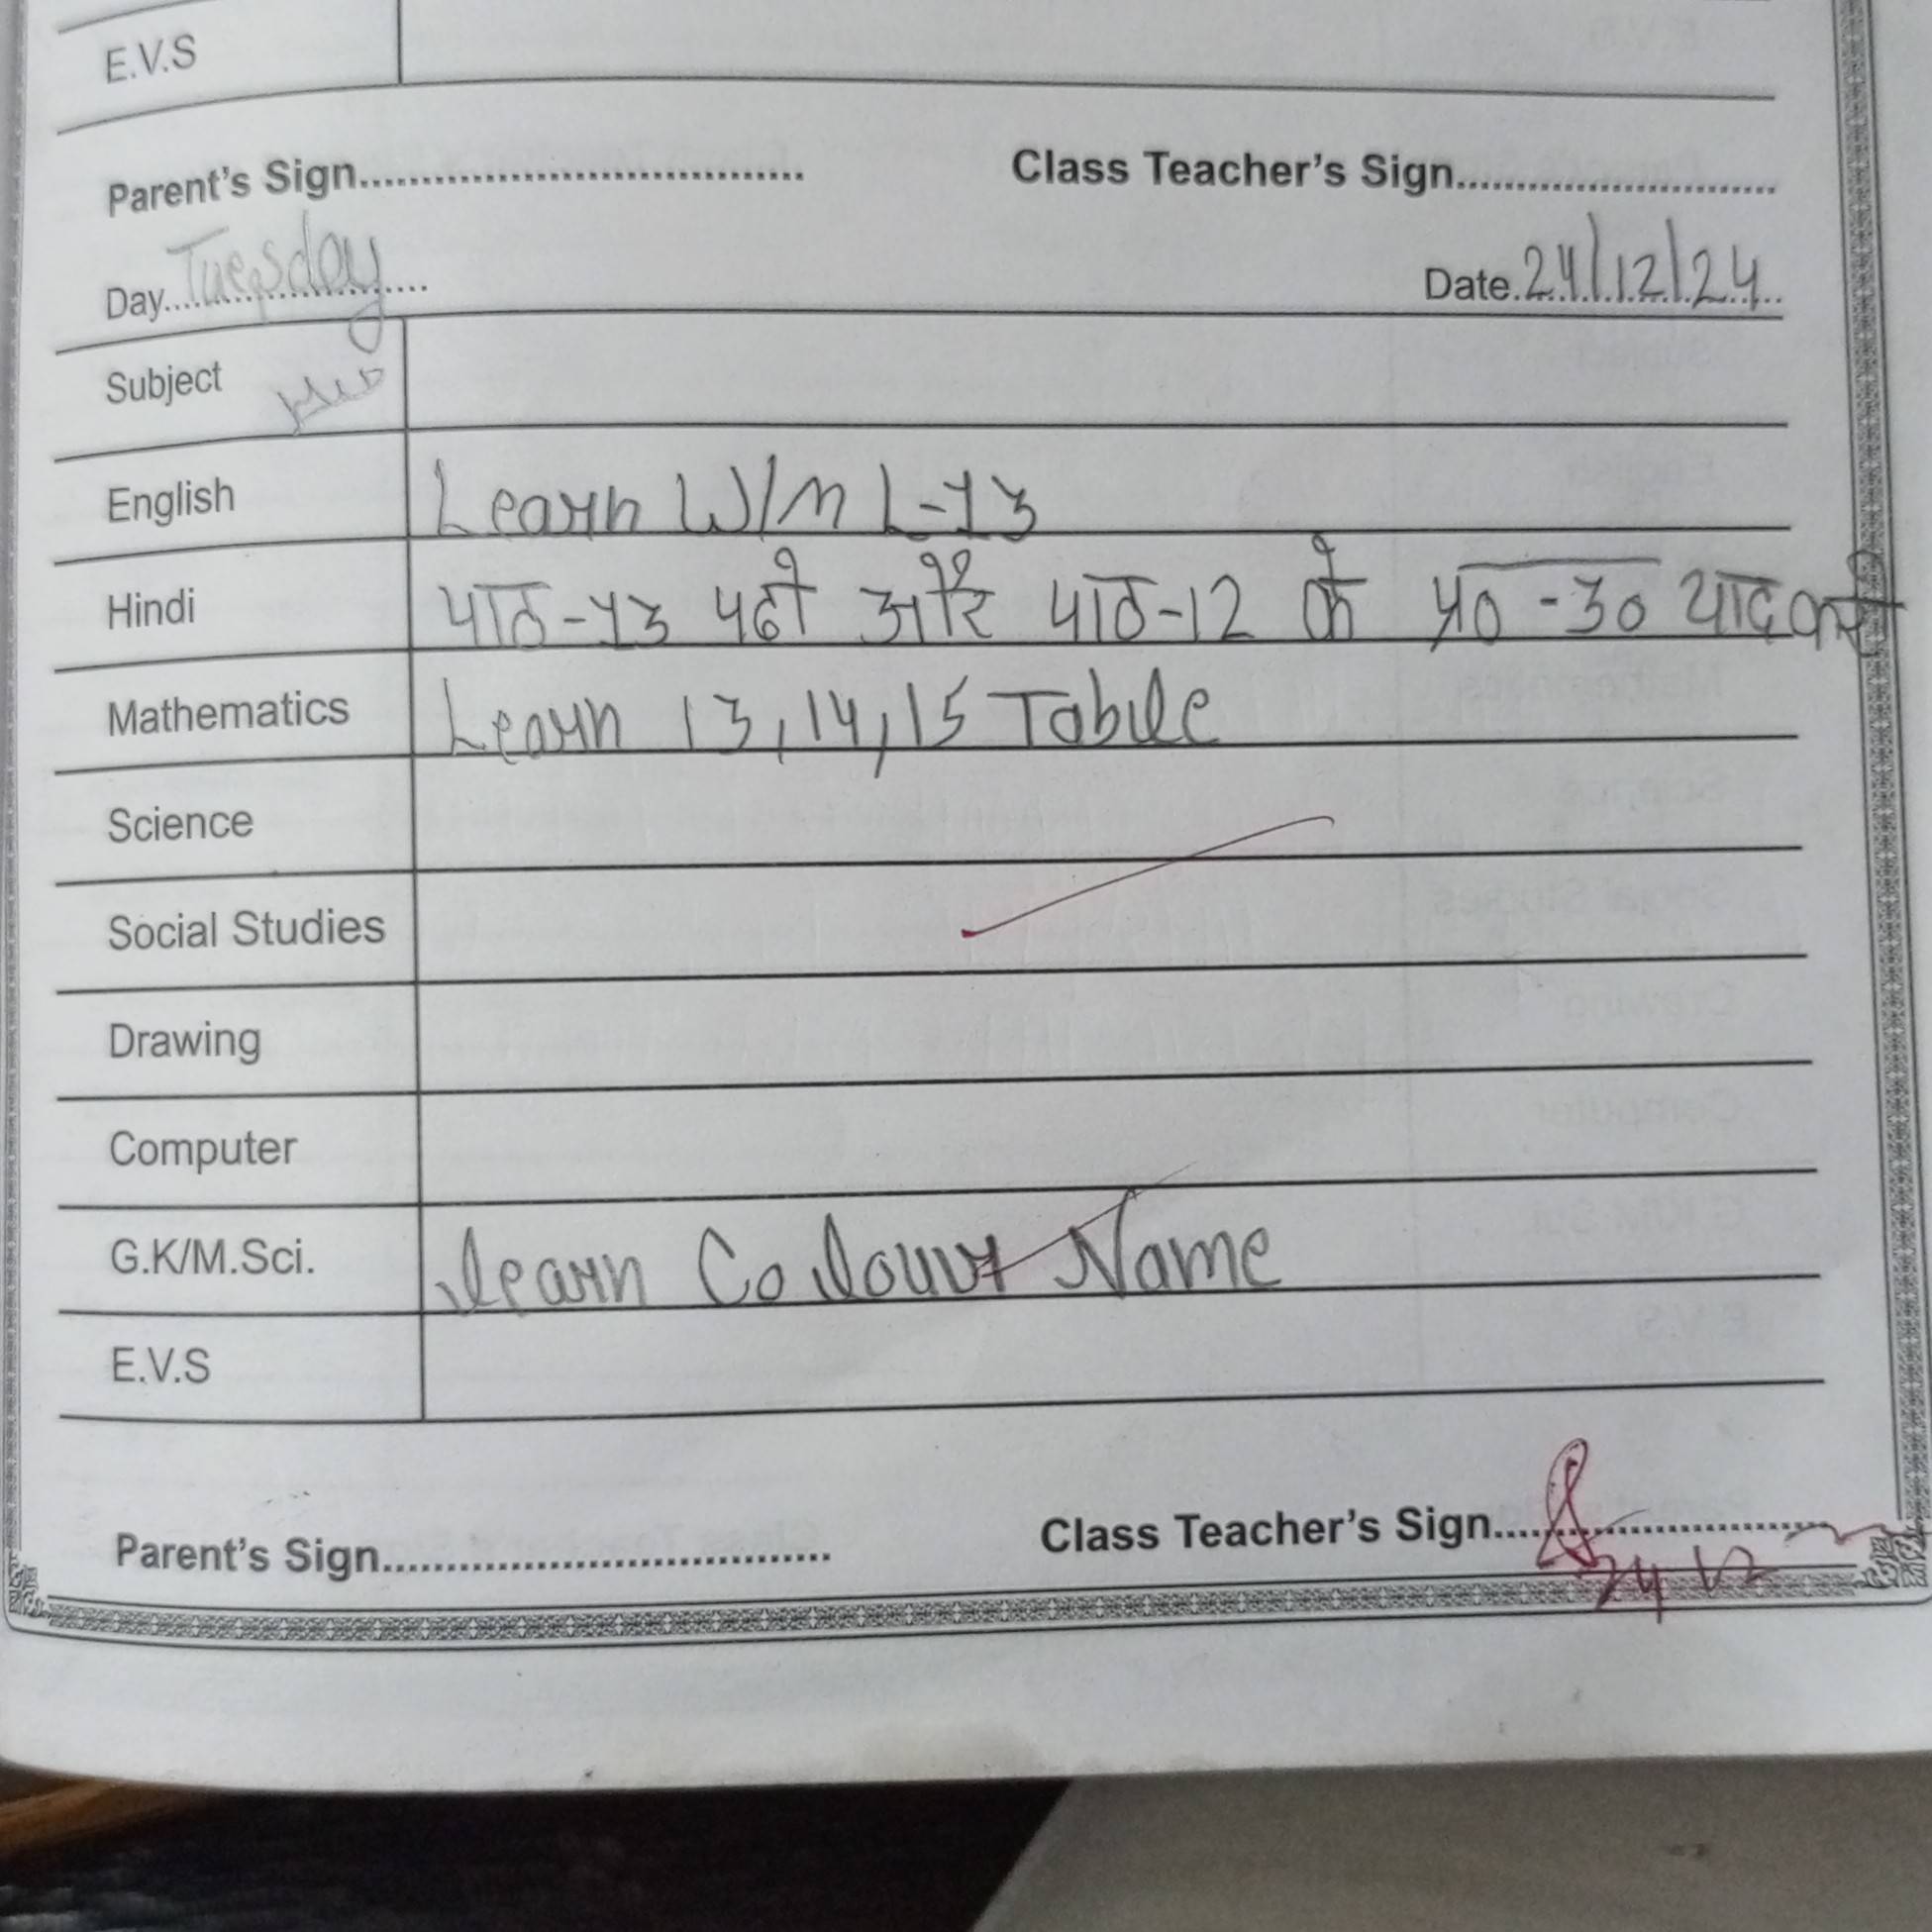 E.V.S
Parent's Sign.................................. Class Teacher's Sign.........................
Day Tuesday Date 24/12/24
Subject
English Learn W/m L-13
Hindi पाठ-13 पढ़ो और पाठ-12 के प्र०-उ० याद करो
Mathematics Learn 13, 14, 15 Table
Science
Social Studies
Drawing
Computer
G.K/M.Sci. learn Colour Name
E.V.S
Parent's Sign.................................. Class Teacher's Sign.........................
24 12